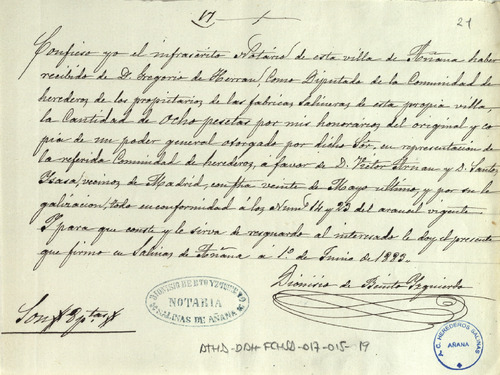 17
21
Confieso yo el infrascrito Notario de esta villa de Añana haber
recibido de D. Gregorio de Herran, como Diputado de la Comunidad de
herederos de los propietarios de las fabricas salineras de esta propia villa,
la Cantidad de Ocho pesetas por mis honorarios del original y co-
pia de un poder general otorgado por dicho Sor, en representacion de
la referida Comunidad de herederos, á favor de D. Victor Arnau y D. Santos
Ysasa, vecinos de Madrid, con fha veinte de Mayo ultimo, y por su le-
galizacion, todo en conformidad á los Nums 14 y 23 del arancel vigente.
Y para que conste y le sirva de resguardo al interesado le doy el presente
que firmo en Salinas de Añana á 1.º de Junio de 1883.
Dionisio de Bto Yzquierdo
Son 8 ptas
DIONISIO DE BTO YZQUIERDO
NOTARIA
SALINAS DE AÑANA
ATHA-DAH-FCHSA-017-015-19
A.C. HEREDEROS SALINAS
AÑANA